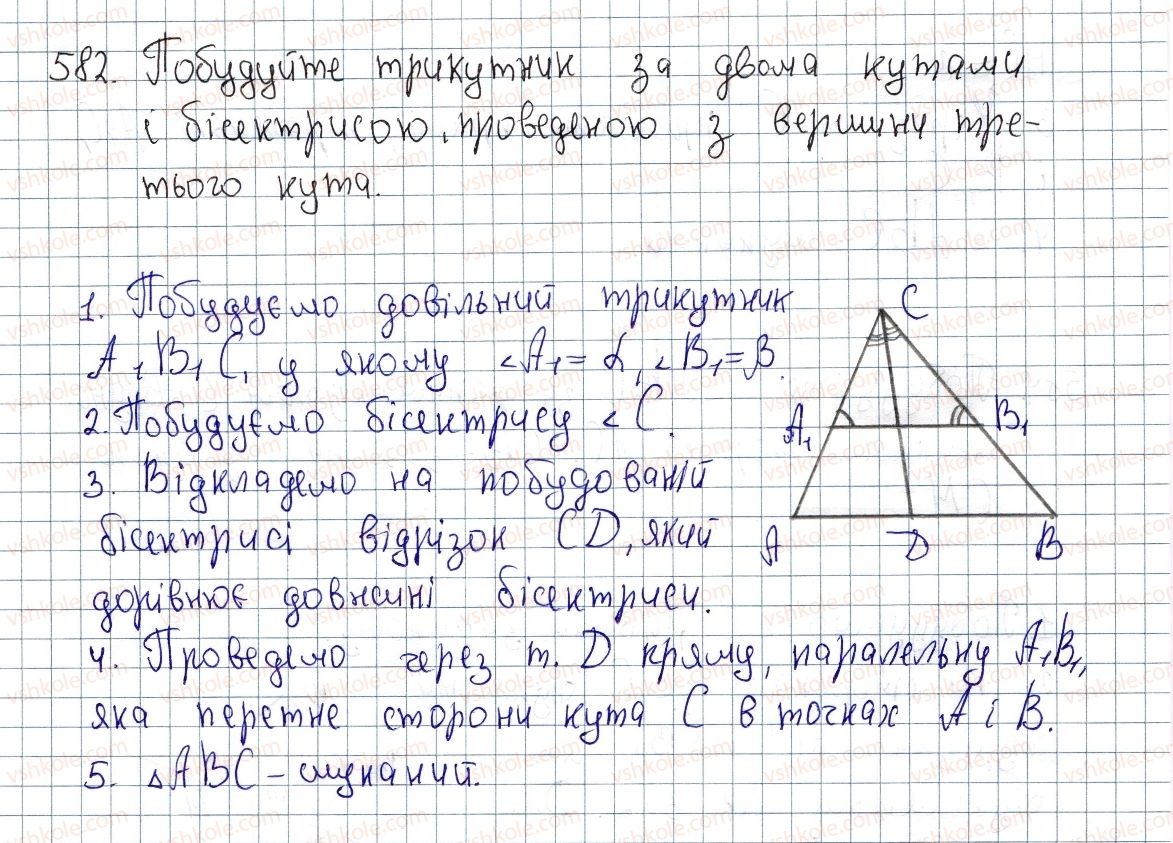 582. Побудуйте трикутник за двома кутами
і бісектрисою, проведеною з вершини тре-
тього кута.
1. Побудуємо довільний трикутник
A₁B₁C, у якому <A₁=α, <B₁=β.
2. Побудуємо бісектрису <C.
3. Відкладемо на побудованій
бісектрисі відрізок CD, який
дорівнює довжині бісектриси.
4. Проведемо через т. D пряму, паралельну A₁B₁,
яка перетне сторони кута C в точках A і B.
5. △ABC – шуканий.
C
A₁
B₁
A
D
B
vshkole.com